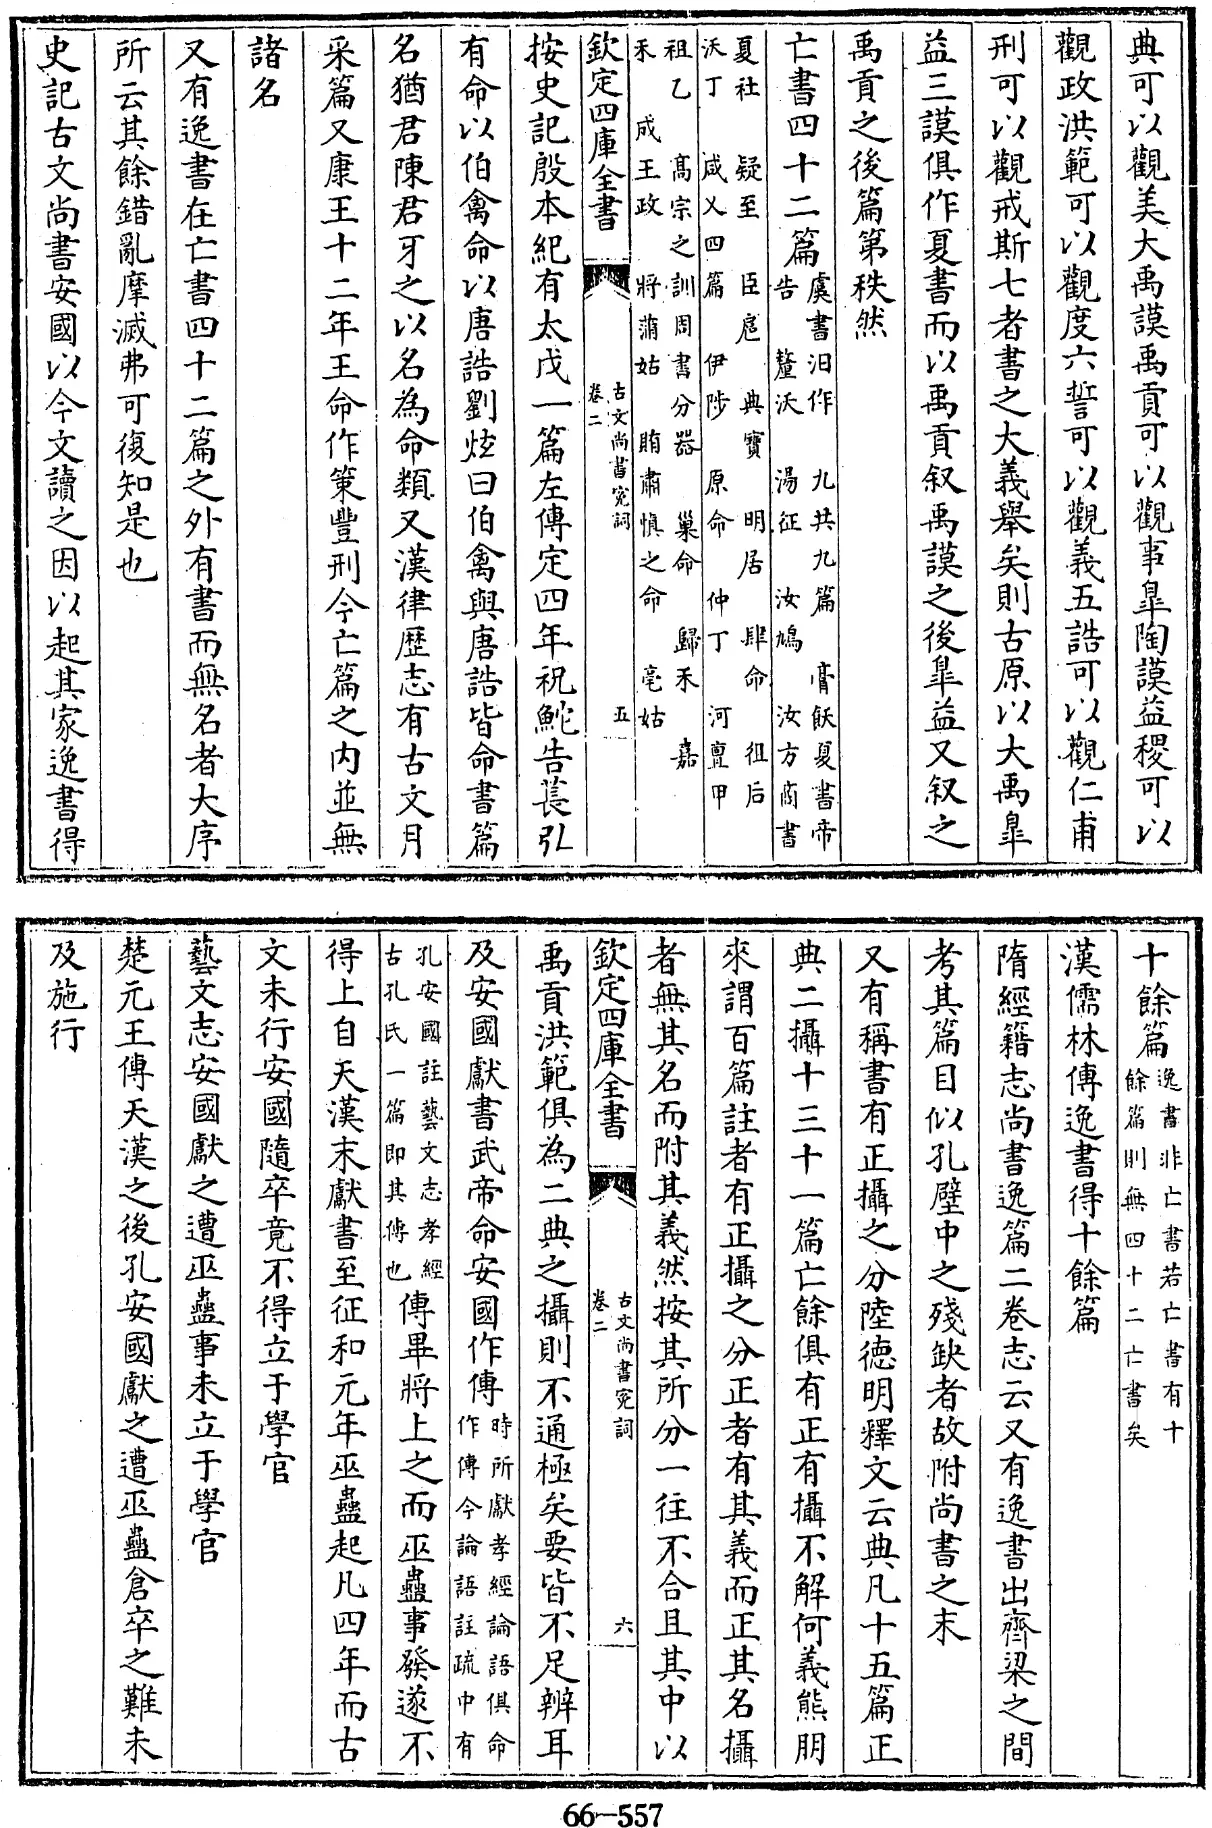 典可以觀美大禹謨禹貢可以觀事臯陶謨益稷可以
觀政洪範可以觀度六誓可以觀義五誥可以觀仁甫
刑可以觀戒斯七者書之大義舉矣則古原以大禹臯
益三謨俱作夏書而以禹貢叙禹謨之後臯益又叙之
禹貢之後篇第秩然
亡書四十二篇虞書汨作 九共九篇 膏飫夏書帝
告 釐沃 湯征 汝鳩 汝方商書
夏社 疑至 臣扈 典寶 明居 肆命 徂后
沃丁 咸乂四篇 伊陟 原命 仲丁 河亶甲
祖乙 髙宗之訓周書分器 巢命 歸禾 嘉
禾 成王政 將蒲姑 賄肅愼之命 亳姑
欽定四庫全書
古文尚書寃詞
卷二
五
按史記殷本紀有太戊一篇左傳定四年祝鮀告萇弘
有命以伯禽命以唐誥劉炫曰伯禽與唐誥皆命書篇
名猶君陳君牙之以名為命類又漢律歴志有古文月
采篇又康王十二年王命作策豐刑今亡篇之内並無
諸名
又有逸書在亡書四十二篇之外有書而無名者大序
所云其餘錯亂摩滅弗可復知是也
史記古文尚書安國以今文讀之因以起其家逸書得
十餘篇逸書非亡書若亡書有十
餘篇則無四十二亡書矣
漢儒林傳逸書得十餘篇
隋經籍志尚書逸篇二卷志云又有逸書出齊梁之間
考其篇目似孔壁中之殘缺者故附尚書之末
又有稱書有正攝之分陸德明釋文云典凡十五篇正
典二攝十三十一篇亡餘俱有正有攝不解何義熊朋
來謂百篇註者有正攝之分正者有其義而正其名攝
者無其名而附其義然按其所分一往不合且其中以
欽定四庫全書
古文尚書寃詞
卷二
六
禹貢洪範俱為二典之攝則不通極矣要皆不足辨耳
及安國獻書武帝命安國作傳時所獻孝經論語俱命
作傳今論語註疏中有
孔安國註藝文志孝經
古孔氏一篇即其傳也傳畢將上之而巫蠱事發遂不
得上自天漢末獻書至征和元年巫蠱起凡四年而古
文未行安國隨卒竟不得立于學官
藝文志安國獻之遭巫蠱事未立于學官
楚元王傳天漢之後孔安國獻之遭巫蠱倉卒之難未
及施行
66-557